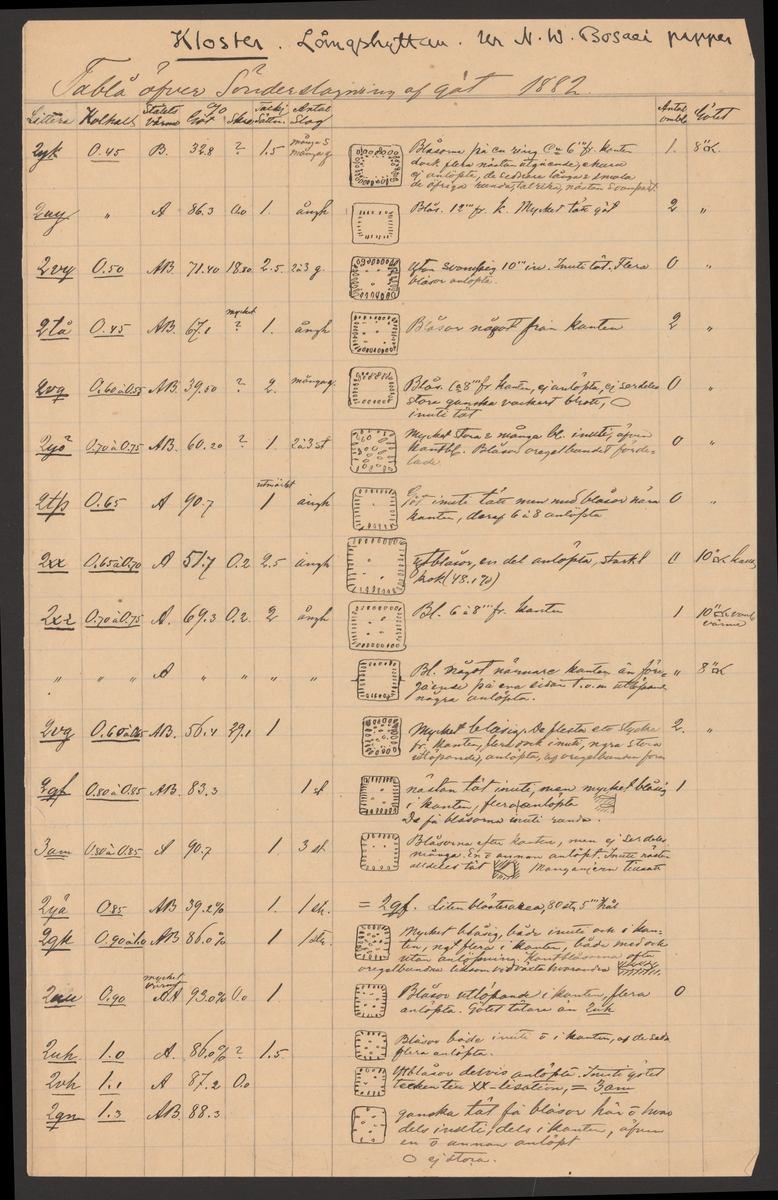 Kloster. Långshyttan. ur N. W. Bosaei papper
Tablå öfver Sönderslagning af göt 1882.
Littera Kolhalt Stålets värme % Göt Skro Antal Slag Antal Götet
2gk 0.45 B. 32.8 ? 1.5 många Blåsorna på en ring Ca 6''' fr. kanten 1. 8"
dock flera nästan utgående,
ej anlöpta, de sednare långa & smala
de öfriga runda,
2uy " A 86.3 0.0 1. ångk Blås. 12''' fr. k. Mycket tätt göt 2 "
2vy 0.50 AB. 71.40 18.80 2.5. 2à3 g. Ytan svampig 10''' in. Inuti tät. Flera 0 "
blåsor anlöpta.
2tå 0.45 AB. 67.1 mycket ? 1. ångk Blåsor något från kanten 2 "
2vq 0.60 à 0.55 AB. 39.50 ? 2. många g. Blås. Ca 8''' fr. kanten, ej anlöpta, ej serdeles 0 "
stora ganska vackert brott,
inuti tät
2yö 0.70 à 0.75 AB. 60.20 ? 1 2à3 st Mycket stora & många bl. inuti, äfven 0 "
kantbl. Blåsor oregelbundet förde-
lade.
2tp 0.65 A 90.7 utmärkt 1 ångk Göt inuti tätt men med blåsor nära 0 "
kanten, deraf 6 à 8 anlöpta
2xx 0.65 à 0.70 A 51.7 0.2 2.5 ångk Ytblåsor, en del anlöpta, starkt 0 10"
kok (48.170)
2xz 0.70 à 0.75 A. 69.3 0.2. 2 ångk Bl. 6 à 8''' fr. kanten 1 10"
värme
" " " A " " " " Bl. något närmare kanten än före- " 8"
gående på ena sidan t.o.m utlöpande
några anlöpta.
2vg 0.60 à 0.65 AB. 56.4 29.1 1 Mycket blåsig. De flesta ett stycke 2. "
fr. kanten, flera ock inuti, ngra stora
utlöpande, anlöpta, af oregelbunden form
2gf 0.80 à 0.85 AB. 83.3 1 st nästan tät inuti, men mycket blåsig 1
i kanten, flera anlöpta
De få blåsorna inuti runda.
3am 0.80 à 0.85 A 90.7 1. 3 st. Blåsorna efter kanten, men ej serdeles
många. En o annan anlöpt. Inuti nästan
alldeles tät Manganjern tillsatt
2yå 0.85 AB 39.2% 1. 1 st. = 2gf. Liten blåstersaea, 80 st, 5''' hål
2gk 0.90 à 1.0 AB 86.0% 1 1 str. Mycket blåsig, både inuti ock i kan-
ten, ngt flera i kanten, både med ock
utan anlöpning. Kantblåsorna ofta
oregelbundna liksom vidvuxta hvarandra
0.90 mycket varmt AA 93.0% 0.0 1 Blåsor utlöpande i kanten, flera 0
anlöpta. Götet tätare än 2uk
2uk 1.0 A. 86.0% ? 1.5. Blåsor både inuti o i kanten, af de sedn
flera anlöpta.
2vh 1.1 A 87.2 0.0 Ytblåsor delvis anlöpta. Inuti götet
tecken till XX-lisation, = 3am
2gn 1.3 AB. 88.3 ganska tät få blåsor här o hvar
dels inuti, dels i kanten, äfven
en o annan anlöpt
ej stora.